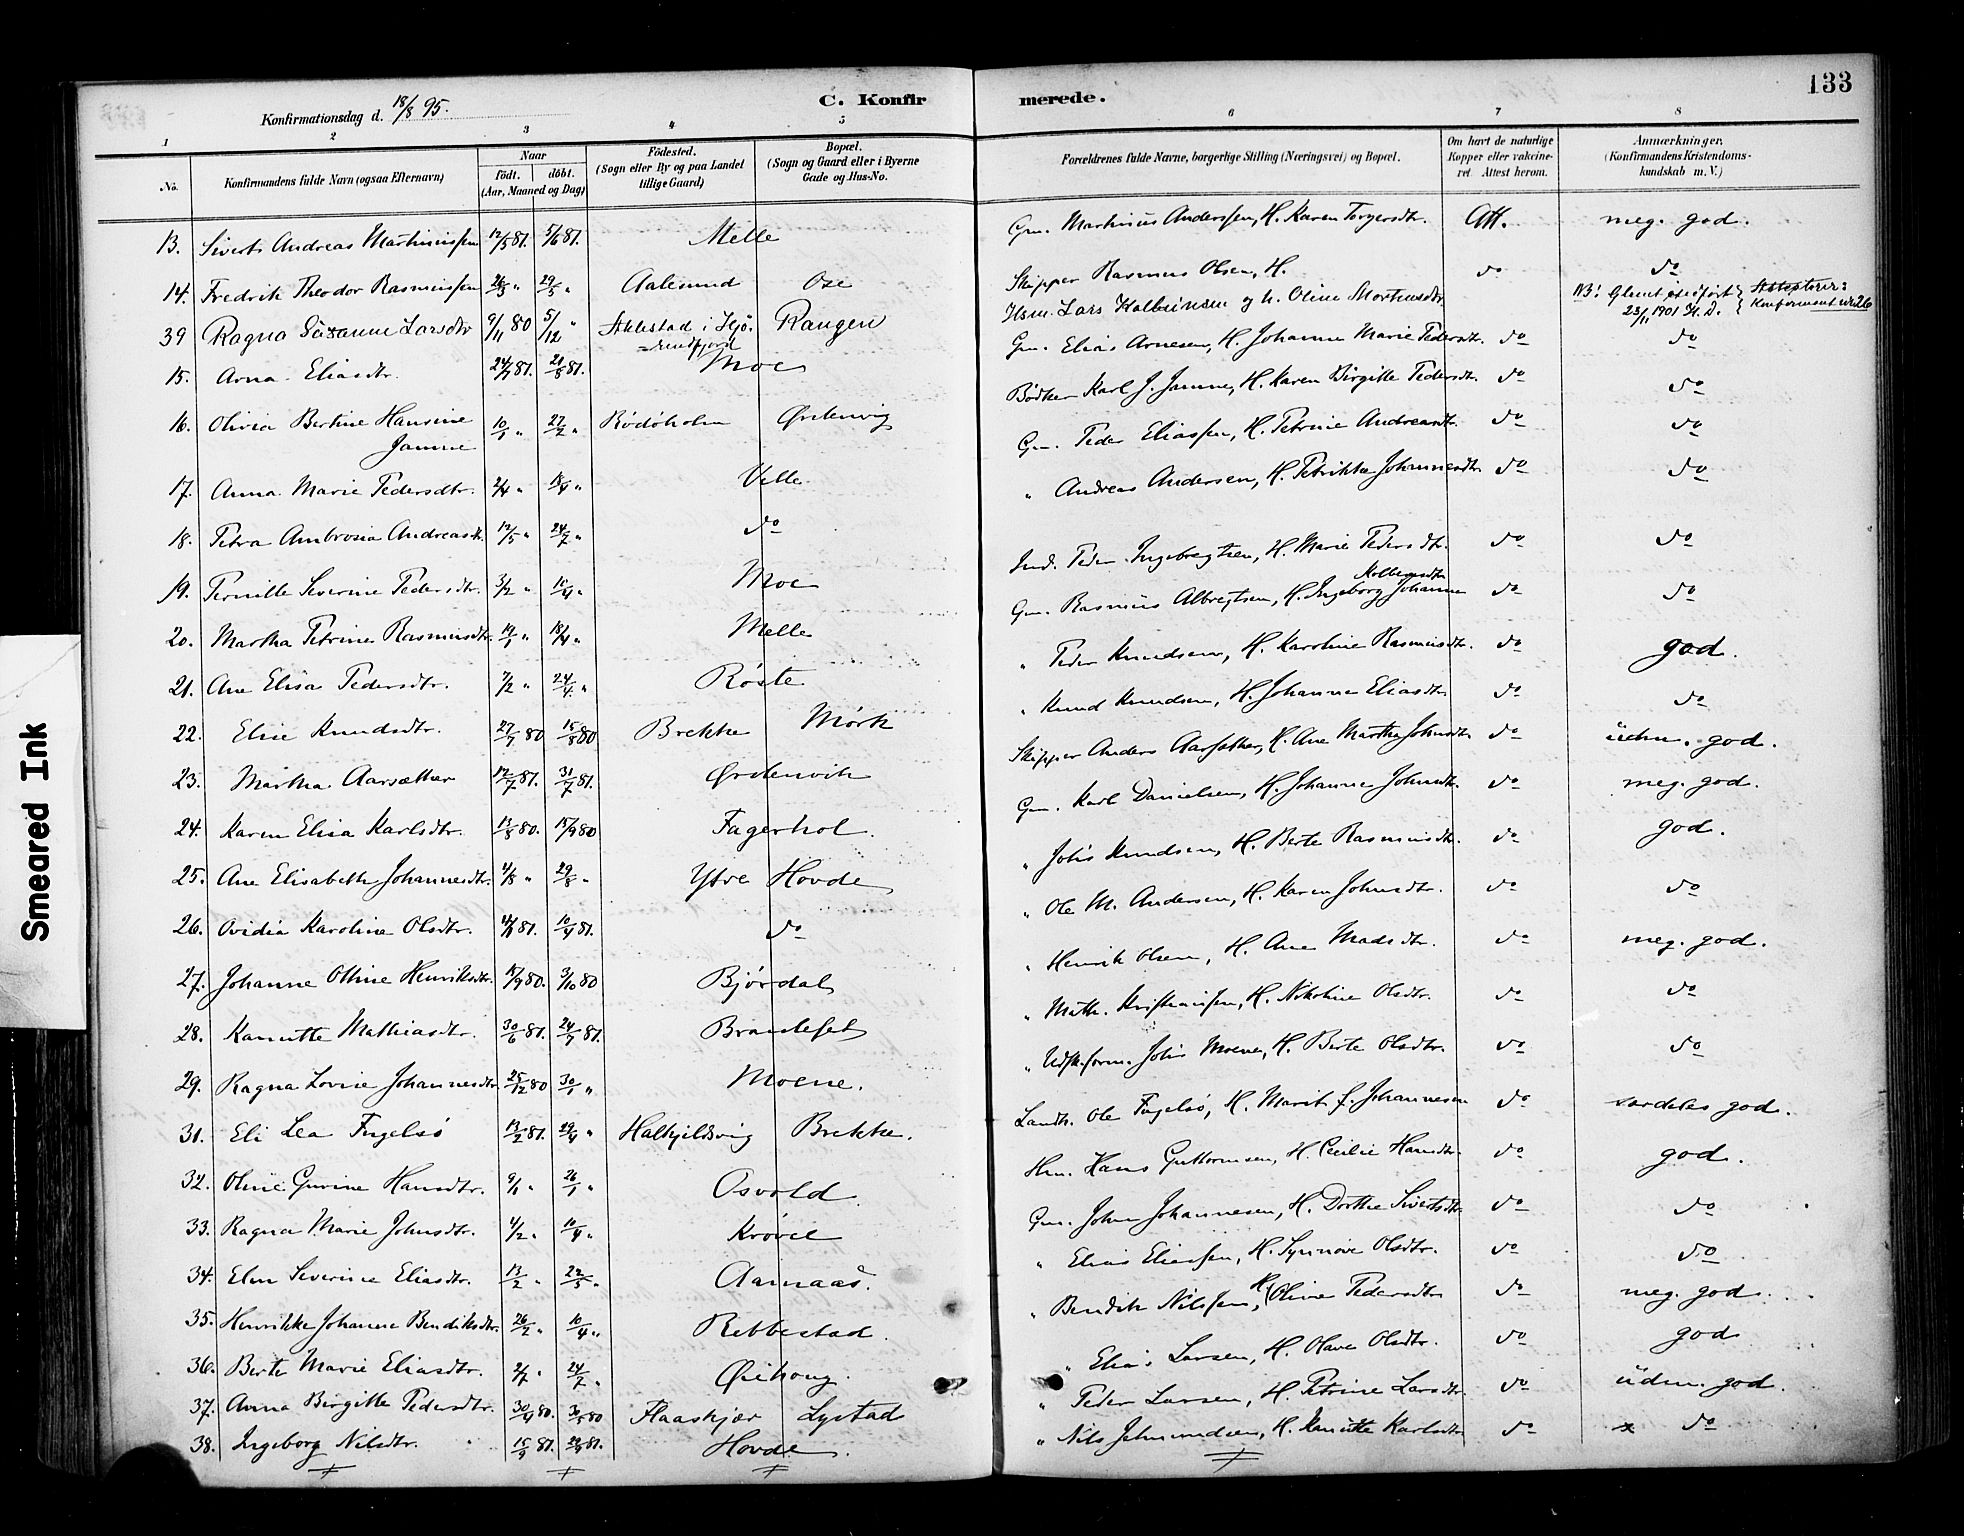 133
C. Konfirmerede.
Konfirmationsdag d. 18/8 95.
1 2 3 4 5 6 7 8
No.
Konfirmandens fulde Navn (ogsaa Efternavn)
Naar
født. døbt.
(Aar, Maaned og Dag)
Fødested.
(Sogn eller By og paa Landet
tillige Gaard)
Bopæl.
(Sogn og Gaard eller i Byerne
Gade og Hus-No.
Forældrenes fulde Navne, borgerlige Stilling (Næringsvei) og Bopæl.
Om havt de naturlige
Kopper eller vakcine-
ret Attest herom.
Anmærkninger.
(Konfirmandens Kristendoms-
kundskab m. V.)
13. Siverts Andreas Martinussen 12/5 81. 5/6 81. Melle Gm. Martinus Anderssen, H. Karen Torgersdtr. Att. meg. god.
14. Fredrik Theodor Rasmussen 26/3 " 29/5 " Aalesund Ose Skipper Rasmus Olsen, H. do do
39 Ragna Susanne Larsdtr 9/11 80 5/12 " i Hjø- Rangen Hsm. Lars og h. Oline Mortensdtr NB! Glemt
rendfjord
23/11 1901 H. D. Konfirmant nr 26
15. Arna Eliasdtr. 24/7 81. 21/8 81. Moe Gm. Elias Arnesen, H. Johanne Marie Pedersdtr. do do
16. Olivia Bertine Hansine 10/1 " 27/2 " Rødøholm Ørstenvig Bødker Karl J. Jamne, H. Karen Birgitte Pedersdtr. do do
Jamne
17. Anna Marie Pedersdtr. 2/4 " 18/4 " Velle Gm. Peder Eliassen, H. Petrine Andreasdtr. do do
18. Petra Ambrosia Andreasdtr. 12/5 " 24/7 " do " Andreas Andersen, H. Petrikke Johannesdtr. do do
19. Pernille Severine Pedersdtr. 3/2 " 10/4 " Moe Ind. Peder Ingebregtsen, H. Marie Pedersdtr. do do
20. Martha Petrine Rasmusdtr. 19/1 " 18/4 " Melle Gm. Rasmus Albregtsen, H. Ingeborg Johanne do do
21. Ane Elisa Pedersdtr. 7/2 " 24/4 " Røste " Peder Knudsen, H. Karoline Rasmusdtr. do god.
22. Elise Knudsdtr. 27/7 80 15/8 80 Brekke Mørk " Knud Knudsen, H. Johanne Eliasdtr do do
23. Martha Aarsæther 12/7 81. 31/7 81. Ørstenvik Skipper Anders Aarsæther, H. Ane Martha Johnsdtr. do üdm. god.
24. Karen Elisa Karlsdtr. 13/8 80. 15/9 80 Fagerhol. Gm. Karl Danielsen, H. Johanne Johnsdtr. do meg. god.
25. Ane Elisabeth Johannesdtr. 4/8 " 29/8 " Ytre Hovde " Johs Knudsen, H. Berte Rasmusdtr. do god.
26. Ovidia Karoline Olsdtr. 81. 10/4 81. do " Ole M. Andersen, H. Karen Johnsdtr. do do
27. Johanne Oline Henriksdtr. 18/9 80. 3/10 80 Bjørdal " Henrik Olsen, H. Ane Madsdtr. do meg. god.
28. Kanutte Mathiasdtr. 30/6 81. 24/7 81. Brauteset " Math. Kristiansen, H. Nikoline Olsdtr. do do
29. Ragna Lovise Johannesdtr. 25/12 80 30/1 " Moene. " Udsk.form. Johs Moene, H. Berte Olsdtr. do do
31. Eli Lea Fugelsø 13/2 81. 29/4 " Halkjelsvig Brekke. Landh. Ole Fugelsø, H. Marit f. Johannesen do særdeles god.
32. Oline Gurine Hansdtr. 9/1 " 26/1 " Osvold Hm. Hans Guttormsen, H. Cecilie Hansdtr. do god.
33. Ragna Marie Johnsdtr. 4/2 " 10/4 " Krøvel Gm. John Johannesen, H. Dorthe Sivertsdtr. do do
34. Elen Severine Eliasdtr. 13/2 " 22/5 " Aarnaas. " Elias Eliassen, H. Synnøve Olsdtr. do do
35. Henrikke Johanne Bendiksdtr. 26/2 " 10/4 " Rebbestad. " Bendik Nilssen, H. Oline Pedersdtr do meg. god.
36. Berte Marie Eliasdtr. 2/7 " 24/7 " Øiehoug. " Elias Larsen, H. Olave Olsdtr. do god
37. Anna Birgitte Pedersdtr. 30/4 80. 30/5 80 Flaaskjær Lystad " Peder Larsen, H. Petrine Larsdtr. do üdm. god.
38. Ingeborg Nilsdtr. 15/9 81. 81. Hovde. " Nils Johnsen, H. Kanutte Karlsdtr do x do
Smeared Ink